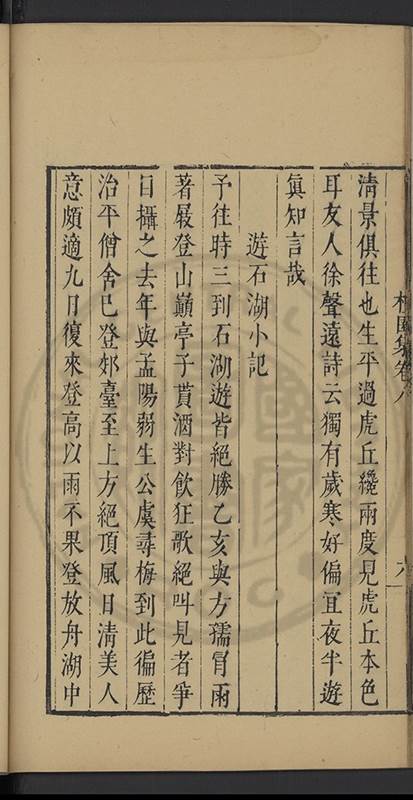 清景俱往也生平過虎丘纔兩度見虎丘本色
耳友人徐聲遠詩云獨有歲寒好偏宜夜半遊
眞知言哉
遊石湖小記
予往時三到石湖遊皆絕勝乙亥與方孺冒雨
著屐登山巔亭子貰酒對飲狂歌絕叫見者爭
目攝之去年與孟陽弱生公虞尋梅到此徧歷
治平僧舍已登郊臺至上方絕頂風日清美人
意頗適九日復來登高以雨不果登放舟湖中
集卷八